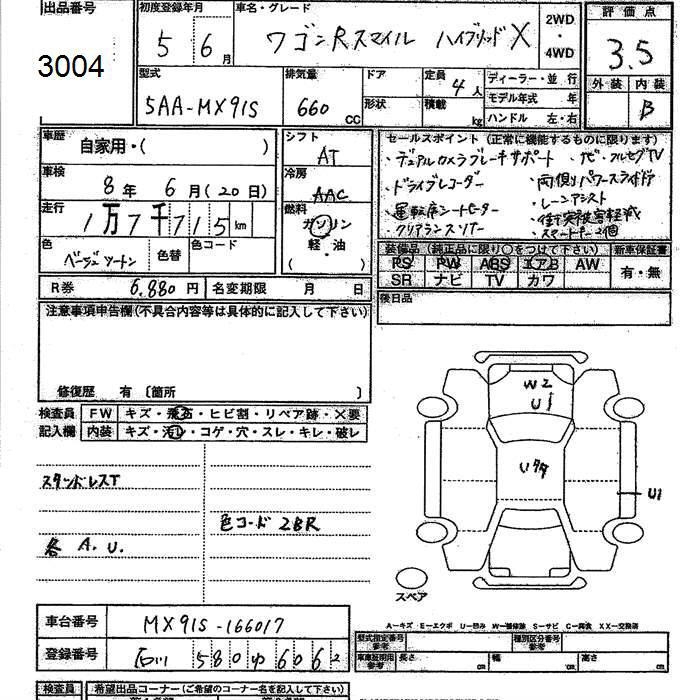 出品番号
3004
初度登録年月
5 6月
車名・グレード
ワゴンRスマイル ハイブリッドX
2WD
・
4WD
評価点
3.5
外装 内装
B
型式
5AA-MX91S
排気量
660 CC
ドア
形状
定員 4人
積載 kg
ディーラー・並行
モデル年式 年
ハンドル 左・右
車歴
自家用・( )
車検
8年 6月(20日)
走行
1万7千715km
色
ベージュツートン
色替
色コード
シフト
AT
冷房
AAC
燃料
ガソリン
軽・油
( )
セールスポイント(正常に機能するものに限ります)
・デュアルカメラブレーキサポート ・ナビ・フルセグTV
・ドライブレコーダー ・両側パワースライドドア
・運転席シートヒーター ・レーンアシスト
・クリアランスソナー ・衝突被害軽減
・スマートキー2個
装備品(純正品に限り○をつけて下さい) 新車保証書
PS PW ABS エアB AW
SR ナビ TV カワ
有・無
R券 6,880円 名変期限 月 日
後日品
注意事項申告欄(不具合内容等は具体的に記入して下さい)
修復歴 有〔箇所 〕
検査員 FW キズ・飛石・ヒビ割・リペア跡・X要
記入欄 内装 キズ・汚レ・コゲ・穴・スレ・キレ・破レ
スタンドレスT
色コード 2BR
各 A.U.
W2
U1
Uタタ
U1
スペア
A-キズ E-エクボ U-凹み W-補修跡 S-サビ C-腐食 XX-交換済
車台番号 MX91S-166017
登録番号 石川 580ゆ6062
型式指定番号
参考
種別区分番号
参考
車庫証明用
参考
長さ cm 幅 cm 高さ cm
検査員 希望出品コーナー(ご希望のコーナー名を記入して下さい)